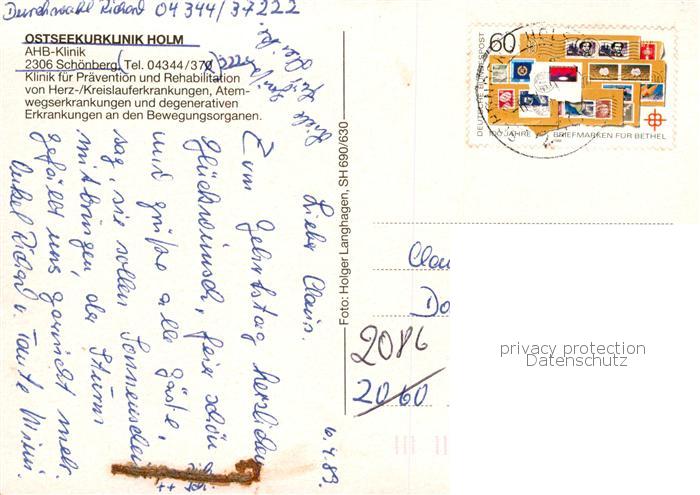 Durchwahl Richard 04344/37222
OSTSEEKURKLINIK HOLM
AHB-Klinik
2306 Schönberg, Tel. 04344/370
(37222)
Klinik für Prävention und Rehabilitation
von Herz-/Kreislauferkrankungen, Atem-
wegserkrankungen und degenerativen
Erkrankungen an den Bewegungsorganen.
6.4.89.
Lieber Claus.
Zum Geburtstag herzlichen
Glückwunsch, feier schön
und grüße alle Gäste,
sag, sie sollen Sonnenschein
mitbringen, der Sturm
gefällt uns garnicht mehr.
Onkel Richard u. Tante Mimi.
Foto: Holger Langhagen, SH 690/630
60
DEUTSCHE BUNDESPOST
100 JAHRE BRIEFMARKEN FÜR BETHEL
Clau
Do
2086
2060
privacy protection
Datenschutz